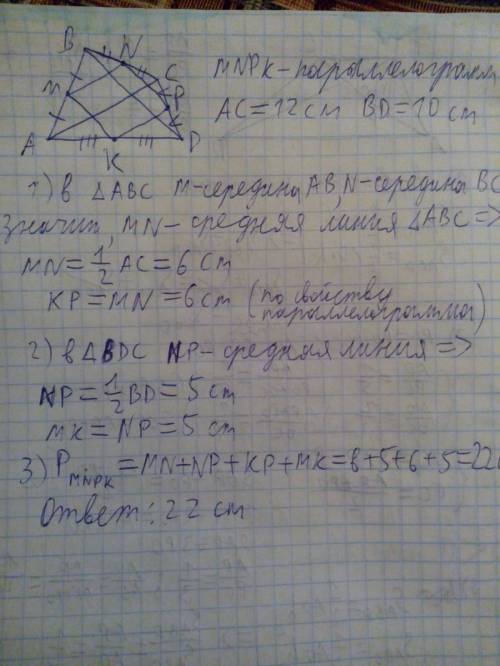 B N C
M P
A K D
MNPK-параллелограмм
AC=12см BD=10см
1) в △ABC M-середина AB, N-середина BC
Значит, MN-средняя линия △ABC =>
MN=1/2 AC=6см
KP=MN=6см (по свойству
параллелограмма)
2) в △BDC NP-средняя линия =>
NP=1/2 BD=5см
MK=NP=5см
3) P MNPK=MN+NP+KP+MK=6+5+6+5=22см
Ответ: 22 см